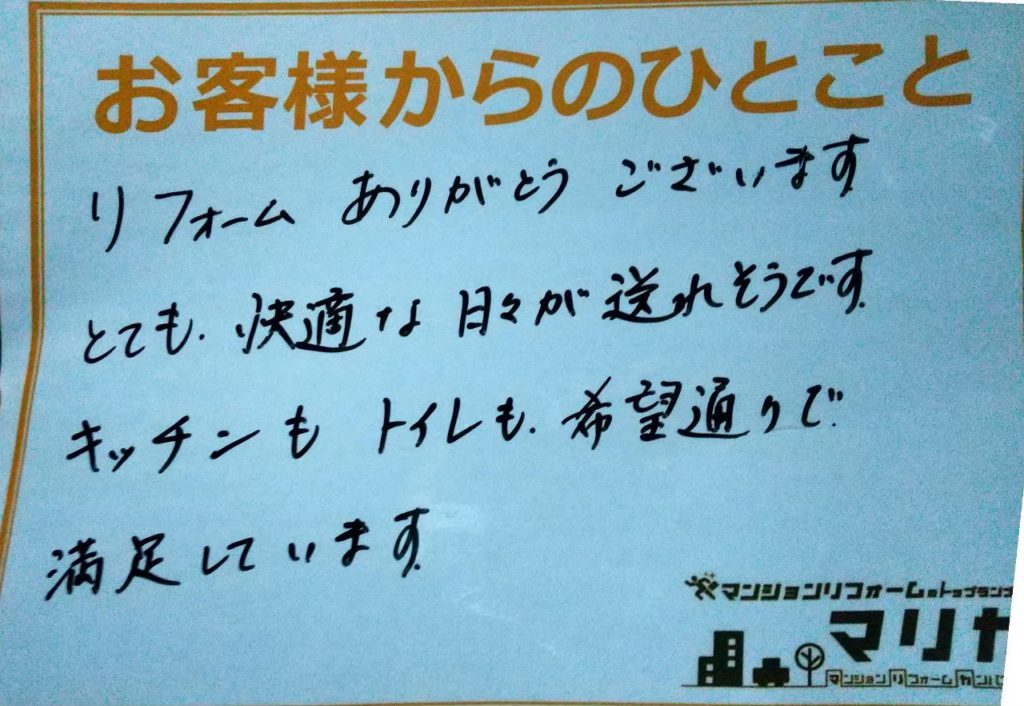 お客様からのひとこと
リフォームありがとうございます
とても、快適な日々が送れそうです。
キッチンもトイレも、希望通りで
満足しています。
マンションリフォームのトップランナ
マリヤ
マンションリフォーム